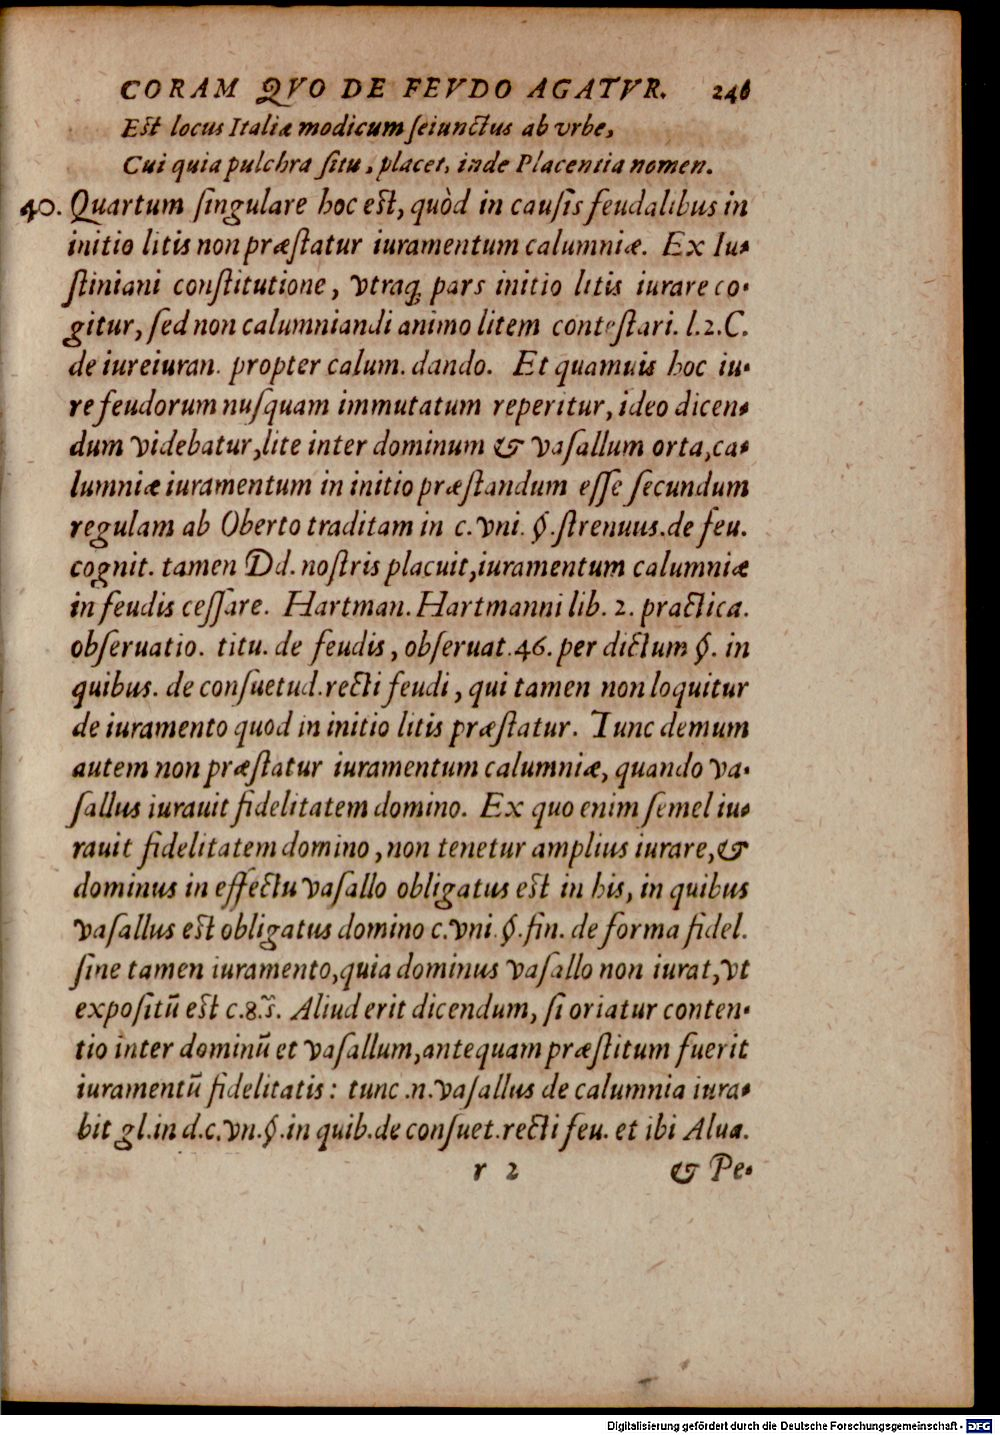 CORAM QVO DE FEVDO AGATVR. 246
Est locus Italiæ modicum seiunctus ab vrbe,
Cui quia pulchra situ, placet, inde Placentia nomen.
40. Quartum singulare hoc est, quòd in causis feudalibus in
initio litis non præstatur iuramentum calumniæ. Ex Iu-
stiniani constitutione, vtraq; pars initio litis iurare co-
gitur, sed non calumniandi animo litem contestari. l.2.C.
de iureiuran. propter calum. dando. Et quamuis hoc iu-
re feudorum nusquam immutatum reperitur, ideo dicen-
dum videbatur, lite inter dominum & vasallum orta, ca-
lumniæ iuramentum in initio præstandum esse secundum
regulam ab Oberto traditam in c. vni. §. strenuus. de feu.
cognit. tamen Dd. nostris placuit, iuramentum calumniæ
in feudis cessare. Hartman. Hartmanni lib. 2. practica.
obseruatio. titu. de feudis, obseruat. 46. per dictum §. in
quibus. de consuetud. recti feudi, qui tamen non loquitur
de iuramento quod in initio litis præstatur. Tunc demum
autem non præstatur iuramentum calumniæ, quando va-
sallus iurauit fidelitatem domino. Ex quo enim semel iu-
rauit fidelitatem domino, non tenetur amplius iurare, &
dominus in effectu vasallo obligatus est in his, in quibus
vasallus est obligatus domino c. vni. §. fin. de forma fidel.
sine tamen iuramento, quia dominus vasallo non iurat, vt
expositū est c. 8. s̃. Aliud erit dicendum, si oriatur conten-
tio inter dominū et vasallum, antequam præstitum fuerit
iuramentū fidelitatis: tunc .n. vasallus de calumnia iura-
bit gl. in d. c. vn. §. in quib. de consuet. recti feu. et ibi Alua.
r 2 & Pe-
Digitalisierung gefördert durch die Deutsche Forschungsgemeinschaft - DFG